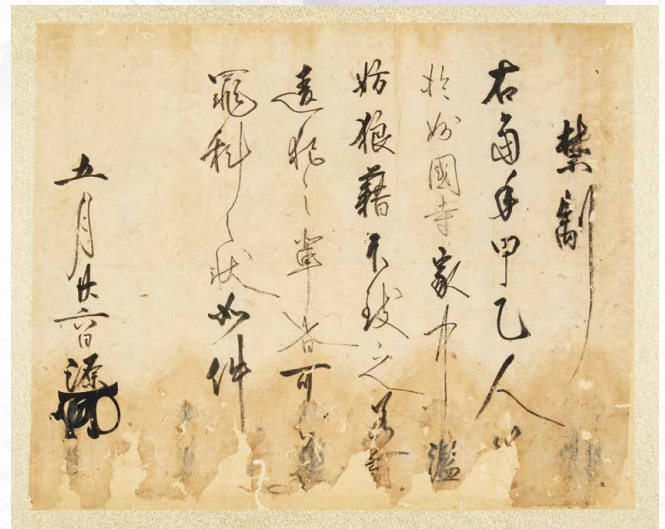 禁制
右當手甲乙人等
於妙國寺家中濫
妨狼藉不致之若有
違犯之輩者可
罪科之状如件
五月廿六日 源